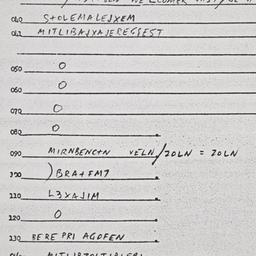 040 S+OLEMALEJXEM
042 MITLIBAJXAJEREGSEST
050 0
060 0
070 0
080 0
090 MIRNBENC+N VELN/ZOLN = ZOLN
100 )BRA+FM7
110 L3XAJIM
120 0
130 BERE PRI AGDFEN